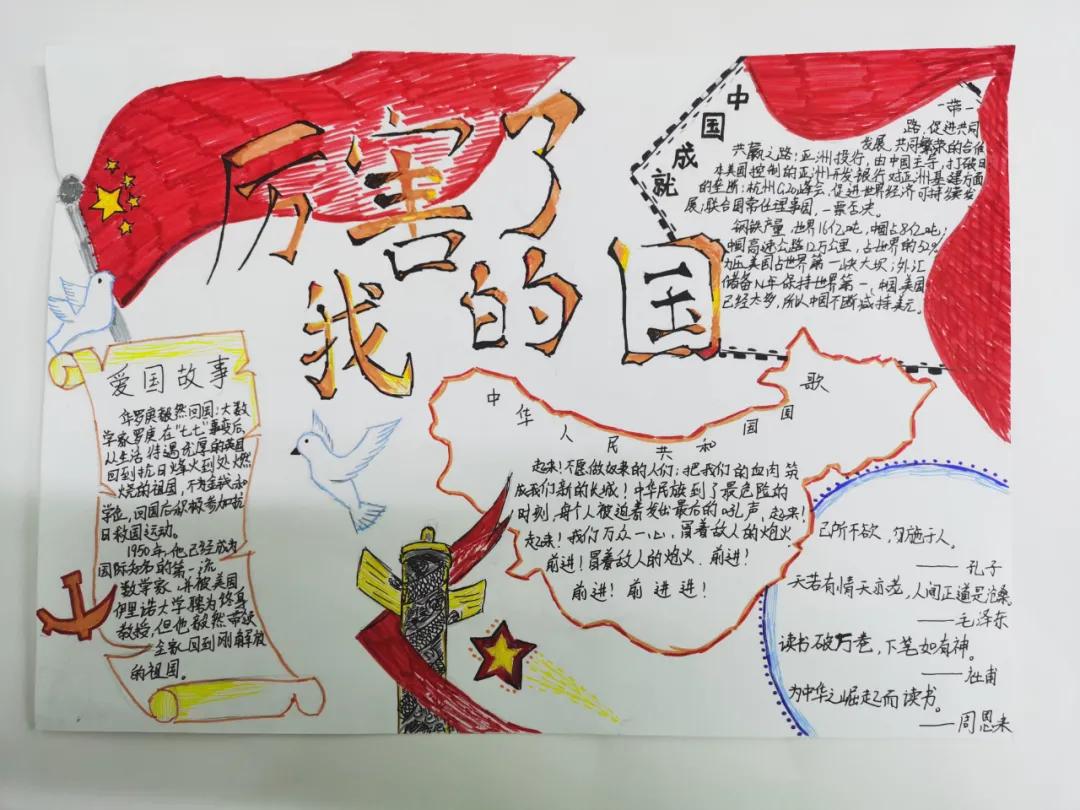 厉害了
我的国
中国成就
一带一
路,促进共同
发展,共同繁荣的合作
共赢之路;亚洲投行,由中国主导,打破日
本美国控制的亚洲开发银行对亚洲基建方面
的垄断;杭州G20峰会,促进世界经济可持续发
展;联合国常任理事国,一票否决。
钢铁产量,世界16亿吨,中国占8亿吨;
中国高速公路12万公里,占世界的52%
为五,美国占世界第一块大坝;外汇
储备N年保持世界第一,中国,美国
已经太多,所以中国不断减持美元。
爱国故事
华罗庚毅然回国:大数
学家罗庚在“七七”事变后,
从生活待遇优厚的英国
回到抗日烽火到处燃
烧的祖国,不为金钱和
学位,回国后积极参加抗
日救国运动。
1950年,他已经成为
国际知名的第一流
数学家,并被美国
伊里诺大学聘为终身
教授,但他毅然带领
全家回到刚解放
的祖国。
中华人民共和国国歌
起来!不愿做奴隶的人们;把我们的血肉筑
成我们新的长城!中华民族到了最危险的
时刻,每个人被迫着发出最后的吼声,起来!
起来!我们万众一心,冒着敌人的炮火
前进!冒着敌人的炮火,前进!
前进!前进进!
己所不欲,勿施于人。
——孔子
天若有情天亦老,人间正道是沧桑。
——毛泽东
读书破万卷,下笔如有神。
——杜甫
为中华之崛起而读书。
——周恩来